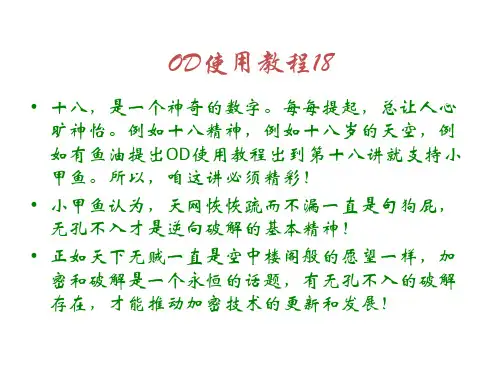 OD使用教程18
• 十八，是一个神奇的数字。每每提起，总让人心
旷神怡。例如十八精神，例如十八岁的天空，例
如有鱼油提出OD使用教程出到第十八讲就支持小
甲鱼。所以，咱这讲必须精彩！
• 小甲鱼认为，天网恢恢疏而不漏一直是句狗屁，
无孔不入才是逆向破解的基本精神！
• 正如天下无贼一直是空中楼阁般的愿望一样，加
密和破解是一个永恒的话题，有无孔不入的破解
存在，才能推动加密技术的更新和发展！